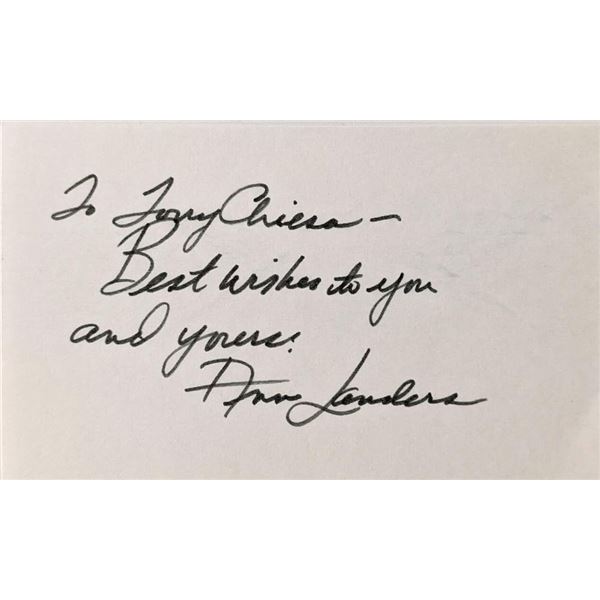 To Tony Chiesa –
Best wishes to you
and yours!
Ann Landers